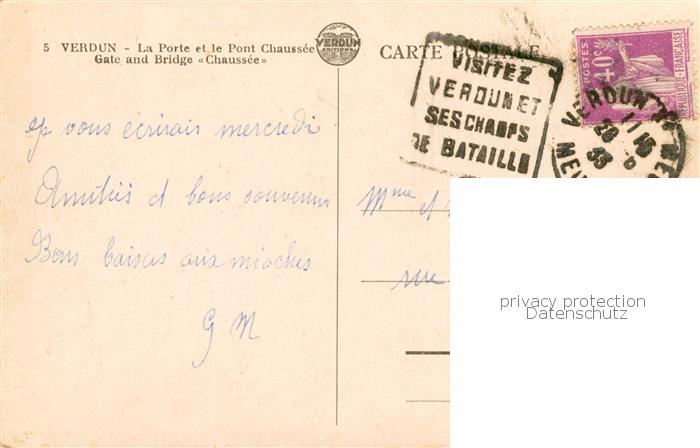 5 VERDUN - La Porte et le Pont Chaussée
Gate and Bridge «Chaussée»
VERDUN
EDITIONS
CARTE POSTALE
VISITEZ
VERDUN ET
SES CHAMPS
DE BATAILLE
POSTES
40c
REPUBLIQUE FRANÇAISE
VERDUN
vous écrirais mercredi
Amitiés et bons souvenirs
Bons baisers aux mioches
G M
Mme et
rue
privacy protection
Datenschutz